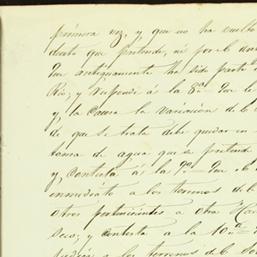 primera vez, y que no ha vuelto
dicto que pretende, ni por el
Que antiguamente ha sido parte
Rio; y responde á la 8ª Que le
y, la Causa la variacion del
de que se trata debe quedar en
toma de agua que se pretende
y, contesta á la 9ª Que el
inmediato a los terrenos del
otros pertenecientes a otra
seco; y contesta a la 10ª
a los terrenos de